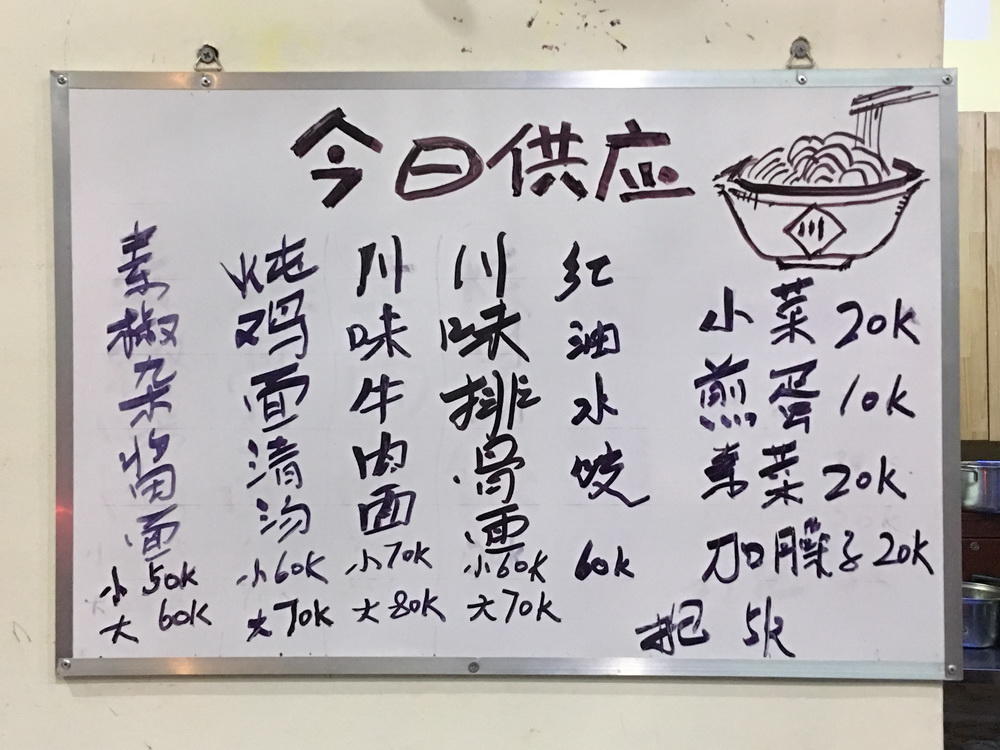 今日供应
川
素椒杂酱面
小 50K
大 60K
炖鸡面清汤
小60K
大70K
川味牛肉面
小70K
大80K
川味排骨面
小60K
大70K
红油水饺
60K
小菜 20K
煎蛋 10K
素菜 20K
加臊子 20K
打包 5K